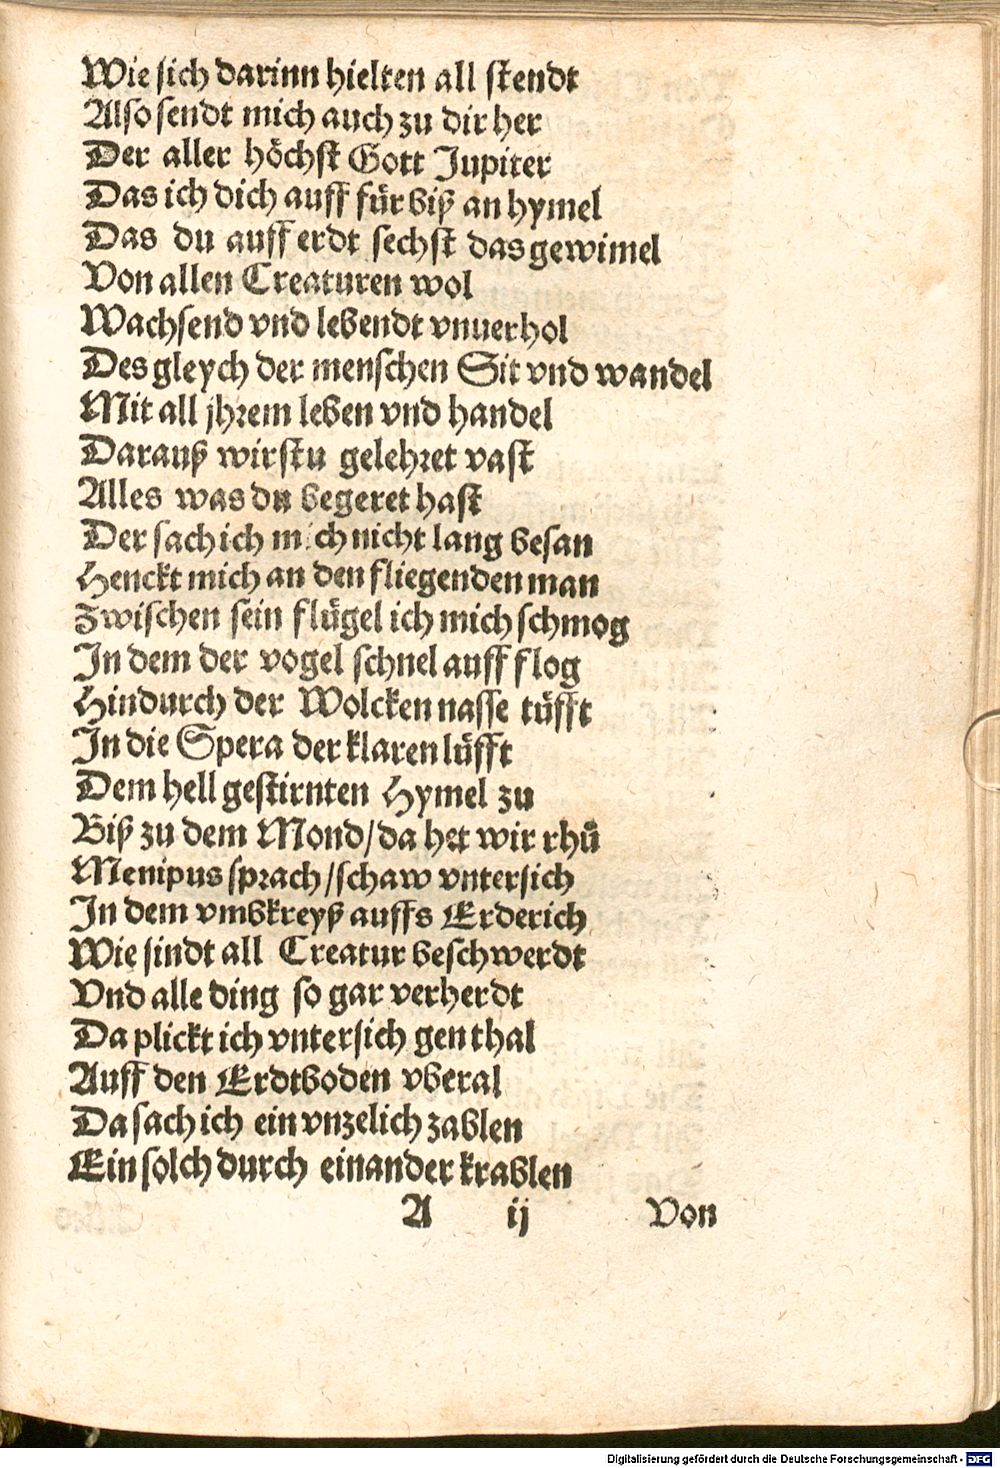 Wie sich darinn hielten all stendt
Also sendt mich auch zu dir her
Der aller höchst Gott Jupiter
Das ich dich auff für biß an hymel
Das du auff erdt sechst das gewimel
Von allen Creaturen wol
Wachsend vnd lebendt vnuerhol
Des gleych der menschen Sit vnd wandel
Mit all jhrem leben vnd handel
Darauß wirstu gelehret vast
Alles was du begeret hast
Der sach ich mich nicht lang besan
Henckt mich an den fliegenden man
Zwischen sein flügel ich mich schmog
In dem der vogel schnel auff flog
Hindurch der Wolcken nasse tüfft
In die Spera der klaren lüfft
Dem hell gestirnten Hymel zu
Biß zu dem Mond/da het wir rhů
Menipus sprach/schaw vntersich
In dem vmbkreyß auffs Erderich
Wie sindt all Creatur beschwerdt
Vnd alle ding so gar verherdt
Da plickt ich vntersich gen thal
Auff den Erdtboden vberal
Da sach ich ein vnzelich zablen
Ein solch durch einander krablen
A ij Von
Digitalisierung gefördert durch die Deutsche Forschungsgemeinschaft - DFG